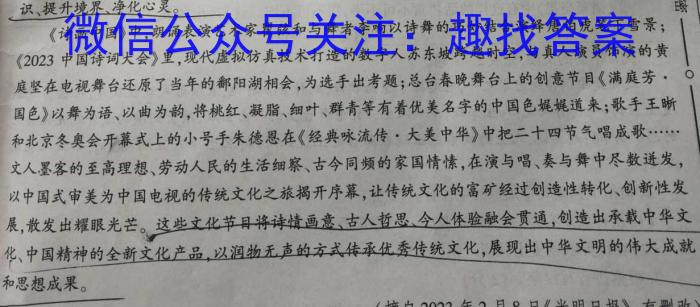 识、提升境界、净化心灵。
微信公众号关注：趣找答案
《2023 中国诗词大会》里，现代虚拟仿真技术打造的数字人苏东坡跨越时空，与真人演员饰演的黄
庭坚在电视舞台还原了当年的鄱阳湖相会，为选手出考题；总台春晚舞台上的创意节目《满庭芳·
国色》以舞为语、以曲为韵，将桃红、凝脂、细叶、群青等有着优美名字的中国色娓娓道来；歌手王晰
和北京冬奥会开幕式上的小号手朱德恩在《经典咏流传·大美中华》中把二十四节气唱成歌……
文人墨客的至高理想、劳动人民的生活细察、古今同频的家国情愫，在演与唱、奏与舞中尽数迸发，
以中国式审美为中国电视的传统文化之旅揭开序幕，让传统文化的富矿经过创造性转化、创新性发
展，散发出耀眼光芒。这些文化节目将诗情画意、古人哲思、今人体验融会贯通，创造出承载中华文
化、中国精神的全新文化产品，以润物无声的方式传承优秀传统文化，展现出中华文明的伟大成就
和思想成果。
（摘自 2023 年 2 月 8 日《光明日报》，有删改